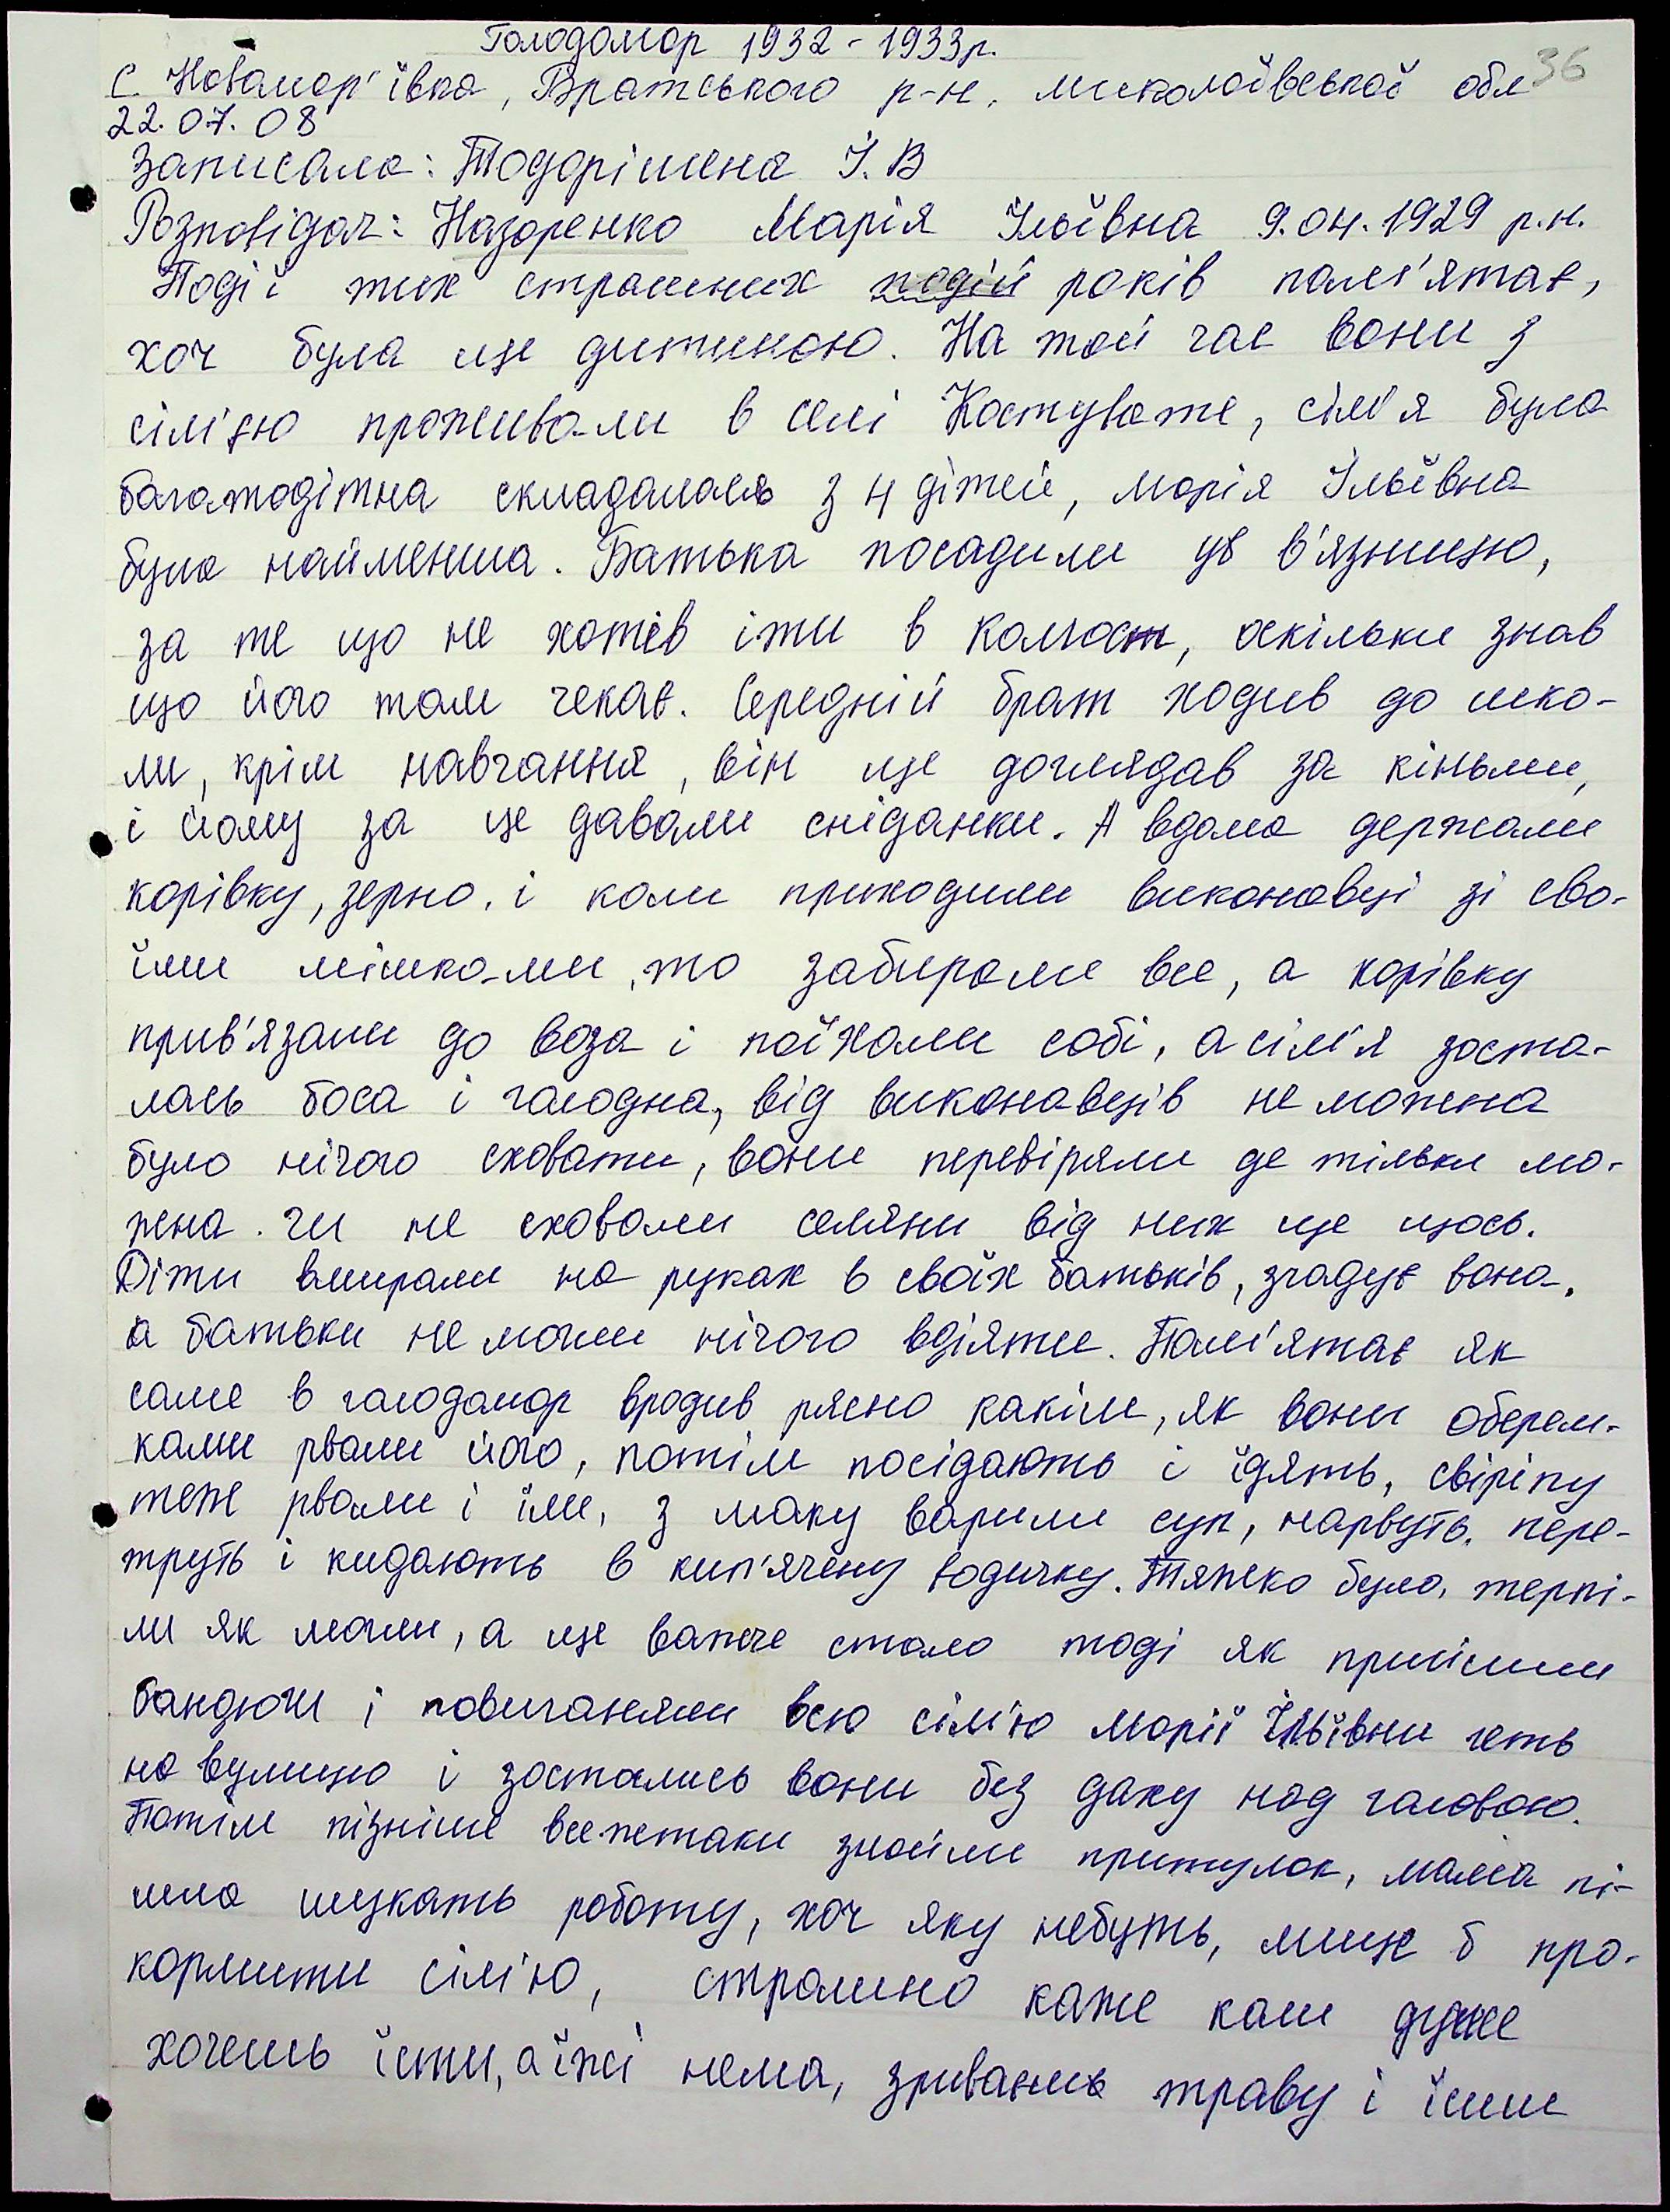 Голодомор 1932 - 1933р.
36
с. Новомар'ївка, Братського р-н, миколаївської обл
22.07.08
Записала: Тодорішена І. В
Розповідач: Назаренко Марія Ільївна 9.04.1929 р.н.
Події тих страшних подій років пам'ятає,
хоч була ще дитиною. На той час вони з
сім'єю проживали в селі Костувате, сім'я була
багатодітна складалась з 4 дітей, Марія Ільївна
була найменша. Батька посадили ув в'язницю,
за те що не хотів іти в колгосп, оскільки знав
що його там чекає. Середній брат ходив до шко-
ли, крім навчання, він ще доглядав за кіньми,
і йому за це давали сніданки. А вдома держали
корівку, зерно, і коли приходили виконавці зі сво-
їми мішками, то забирали все, а корівку
прив'язали до воза і поїхали собі, а сім'я зоста-
лась боса і голодна, від виконавців не можна
було нічого сховати, вони перевіряли де тільки мо-
жна. чи не сховали селяни від них ще щось.
Діти вмирали на руках в своїх батьків, згадує вона,
а батьки не могли нічого вдіяти. Пам'ятає як
саме в голодомор вродив рясно какіш, як вони оберем-
ками рвали його, потім посідають і їдять, свіріпу
теж рвали і їли, з маку варили суп, нарвуть, пере-
труть і кидають в кип'ячену водичку. Тяжко було, терпі-
ли як могли, а ще важче стало тоді як прийшли
бандюги і повиганяли всю сім'ю Марії Ільївни геть
на вулицю і зостались вони без даху над головою.
Потім пізніше все жетаки знайшли притулок, мама пі-
шла шукать роботу, хоч яку небуть, лише б про-
кормити сім'ю, страшно каже коли дуже
хочешь їсти, а їжі нема, зривали траву і їли